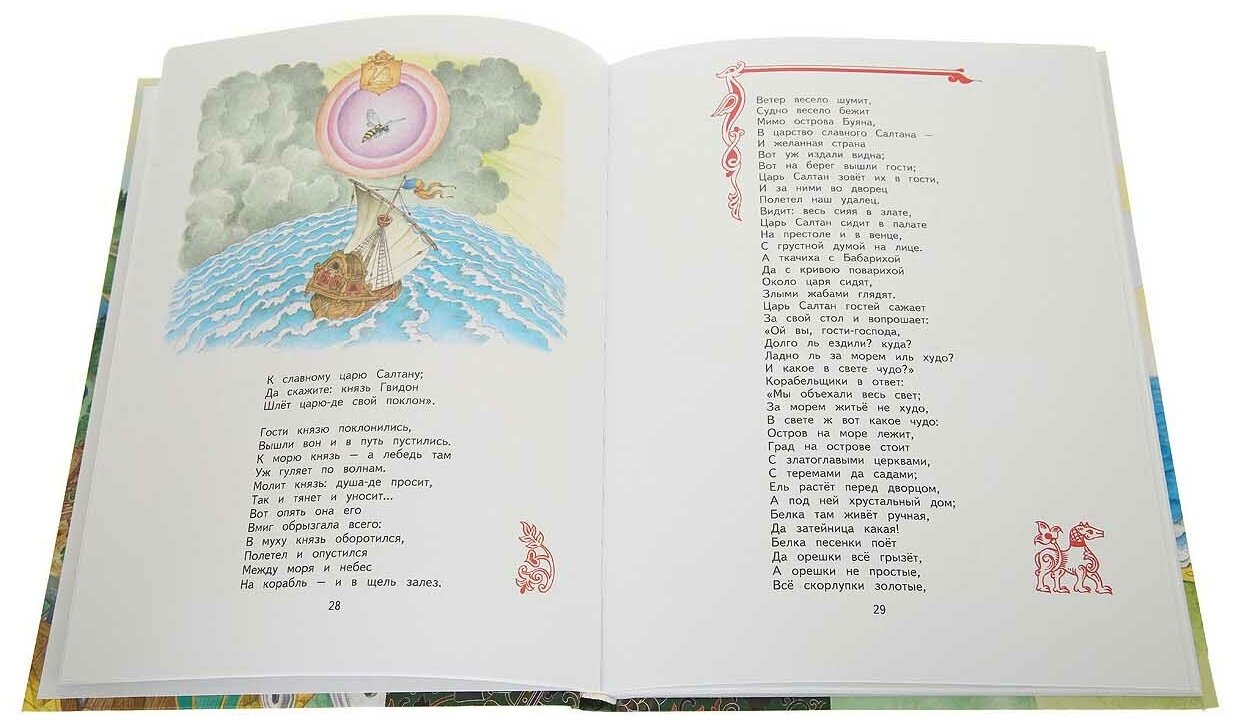 К славному царю Салтану;
Да скажите: князь Гвидон
Шлёт царю-де свой поклон».
Гости князю поклонились,
Вышли вон и в путь пустились.
К морю князь — а лебедь там
Уж гуляет по волнам.
Молит князь: душа-де просит,
Так и тянет и уносит...
Вот опять она его
Вмиг обрызгала всего:
В муху князь оборотился,
Полетел и опустился
Между моря и небес
На корабль — и в щель залез.
28
Ветер весело шумит,
Судно весело бежит
Мимо острова Буяна,
В царство славного Салтана —
И желанная страна
Вот уж издали видна;
Вот на берег вышли гости;
Царь Салтан зовёт их в гости,
И за ними во дворец
Полетел наш удалец.
Видит: весь сияя в злате,
Царь Салтан сидит в палате
На престоле и в венце,
С грустной думой на лице.
А ткачиха с Бабарихой
Да с кривою поварихой
Около царя сидят,
Злыми жабами глядят.
Царь Салтан гостей сажает
За свой стол и вопрошает:
«Ой вы, гости-господа,
Долго ль ездили? куда?
Ладно ль за морем иль худо?
И какое в свете чудо?»
Корабельщики в ответ:
«Мы объехали весь свет;
За морем житьё не худо,
В свете ж вот какое чудо:
Остров на море лежит,
Град на острове стоит
С златоглавыми церквами,
С теремами да садами;
Ель растёт перед дворцом,
А под ней хрустальный дом;
Белка там живёт ручная,
Да затейница какая!
Белка песенки поёт
Да орешки всё грызёт,
А орешки не простые,
Всё скорлупки золотые,
29